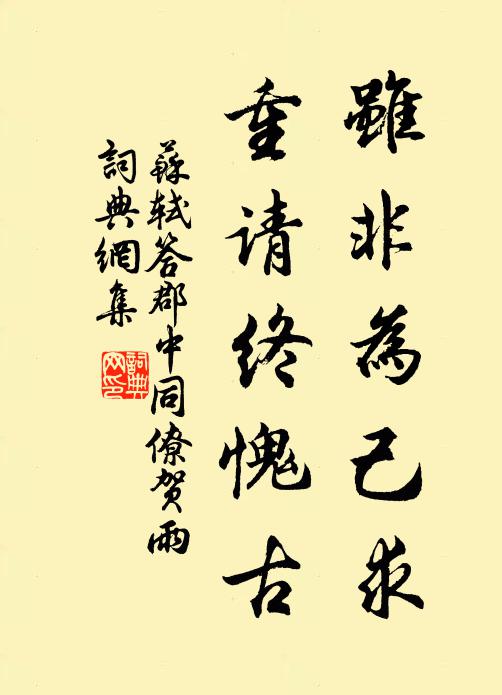 雖非為己求
重请终愧古
蘇軾答郡中同僚贺雨
詞典網集
詞典网印